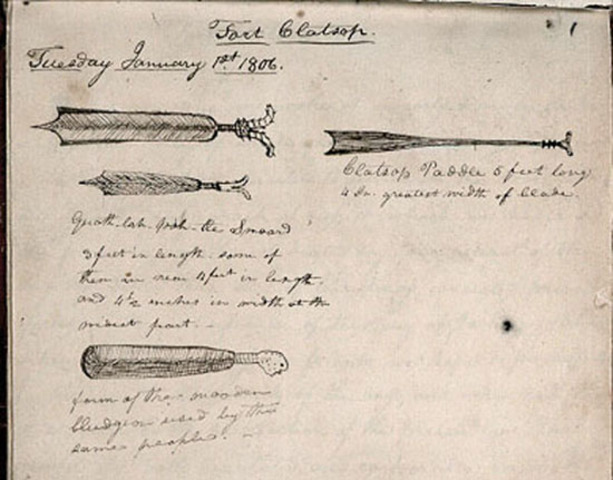 Fort Clatsop.
1
Tuesday January 1st 1806.
Clatsop Paddle 5 feet long
4 In. greatest width of blade.
the Sword
3 feet in length. some of
them are near 4 feet in length.
and 4½ inches in width at the
widest part. –
form of the wooden
bludgeon used by this
same people. –